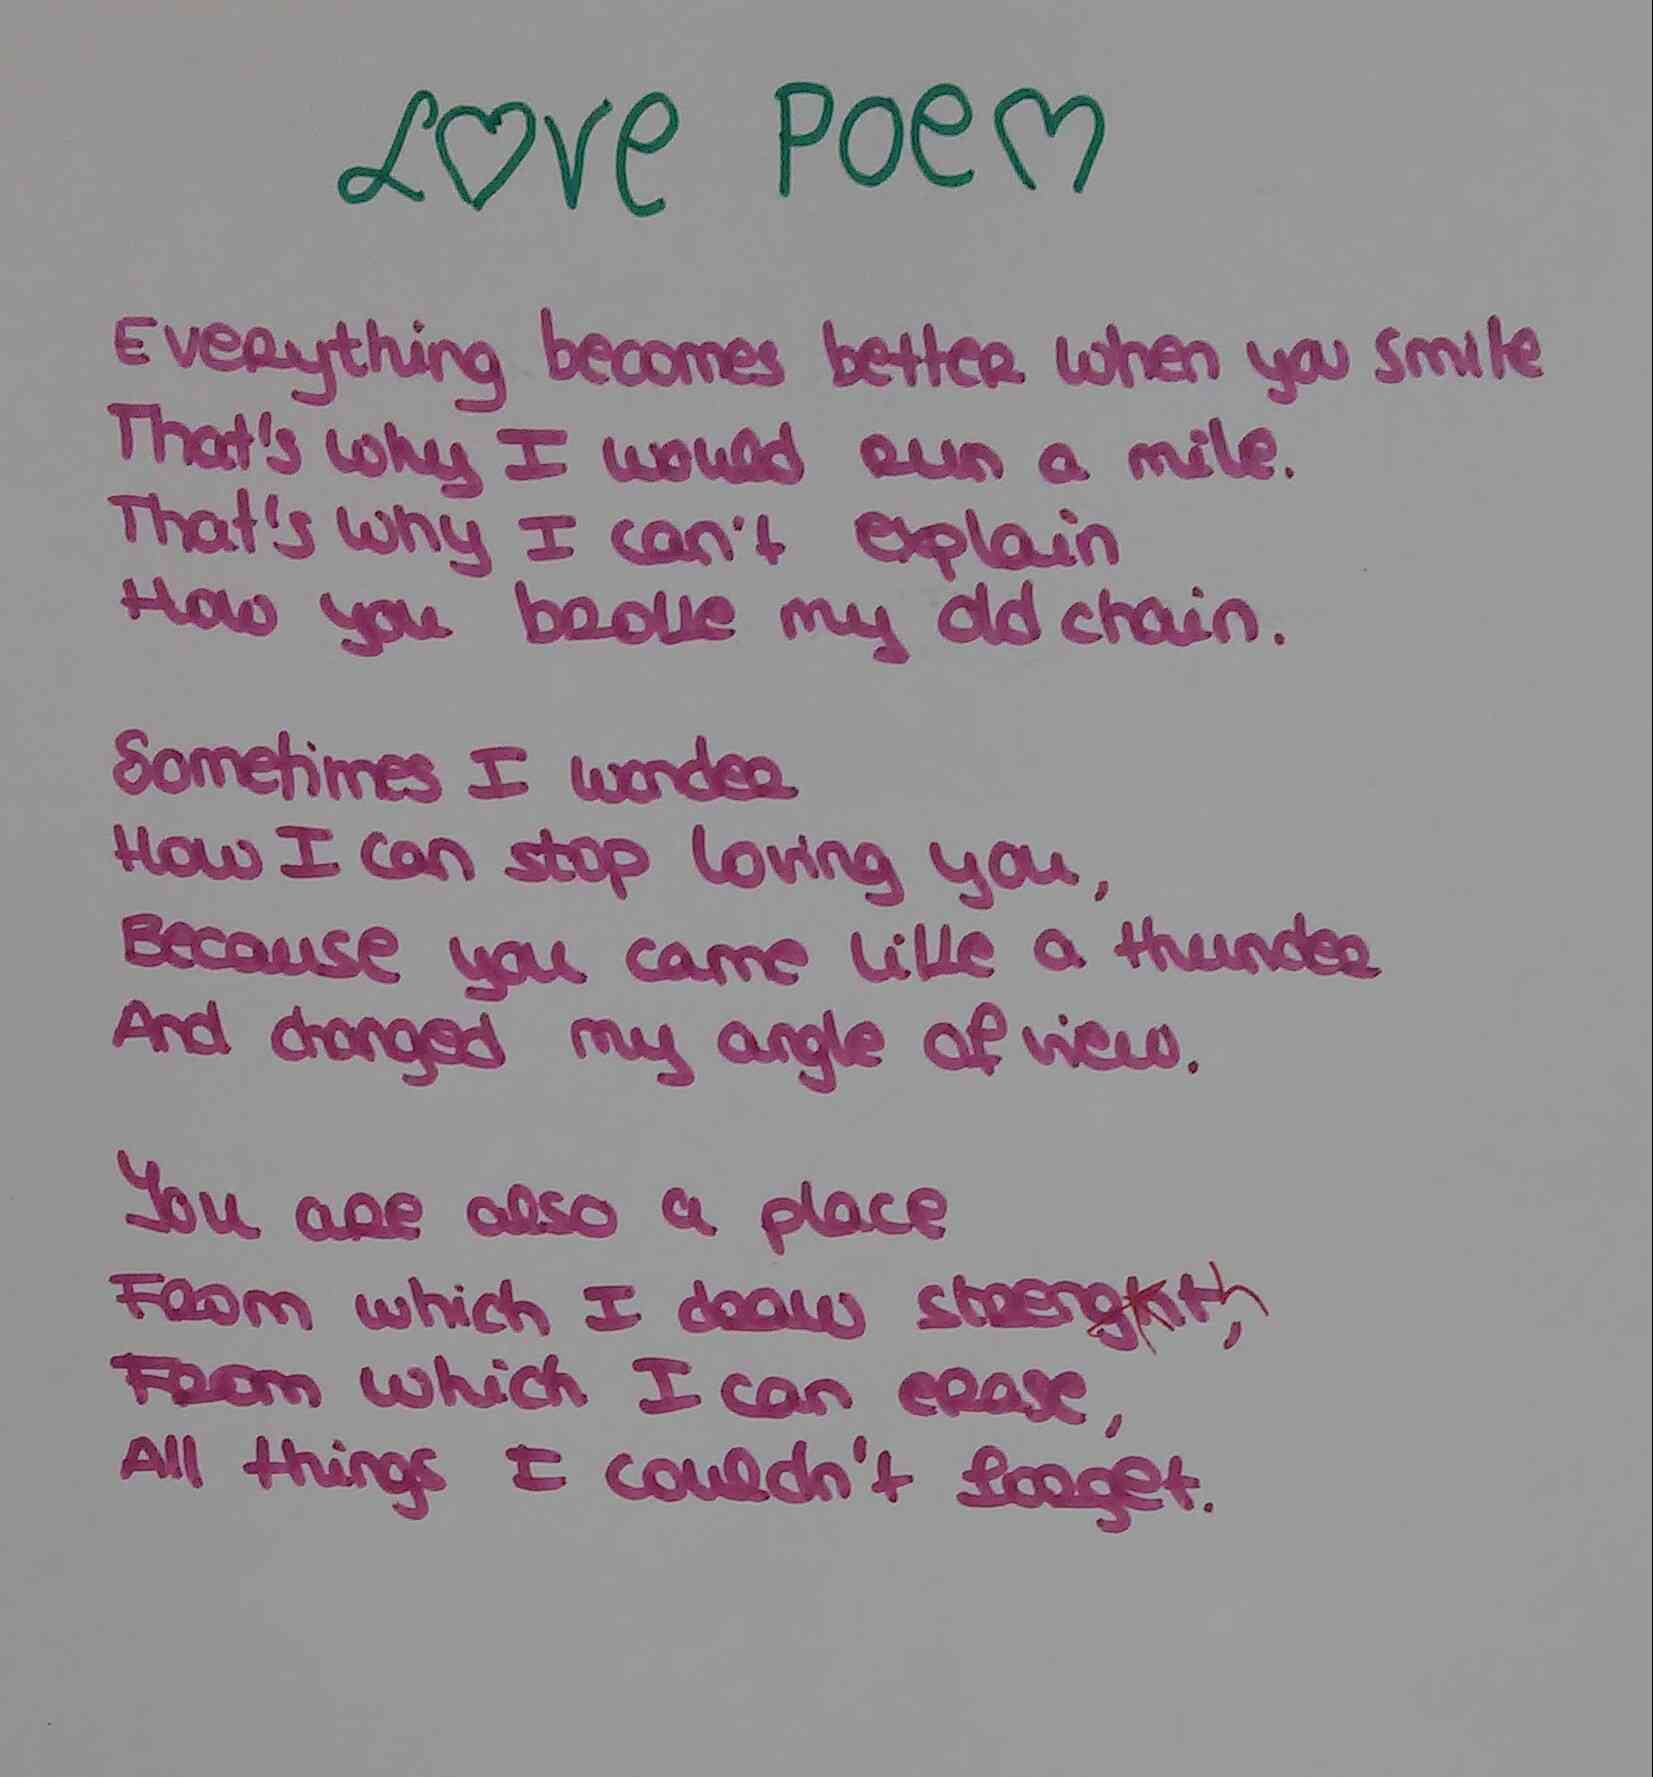 Love Poem
Everything becomes better when you smile
That's why I would run a mile.
That's why I can't explain
How you broke my old chain.
Sometimes I wonder
How I can stop loving you,
Because you came like a thunder
And changed my angle of view.
You are also a place
From which I draw strength,
From which I can erase,
All things I couldn't forget.